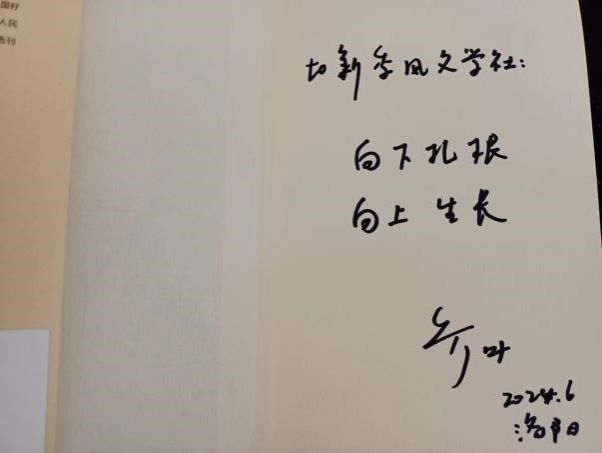 国好
人民
选刊
to 新季风文学社：
向下扎根
向上 生长
乔叶
2024.6
洛阳